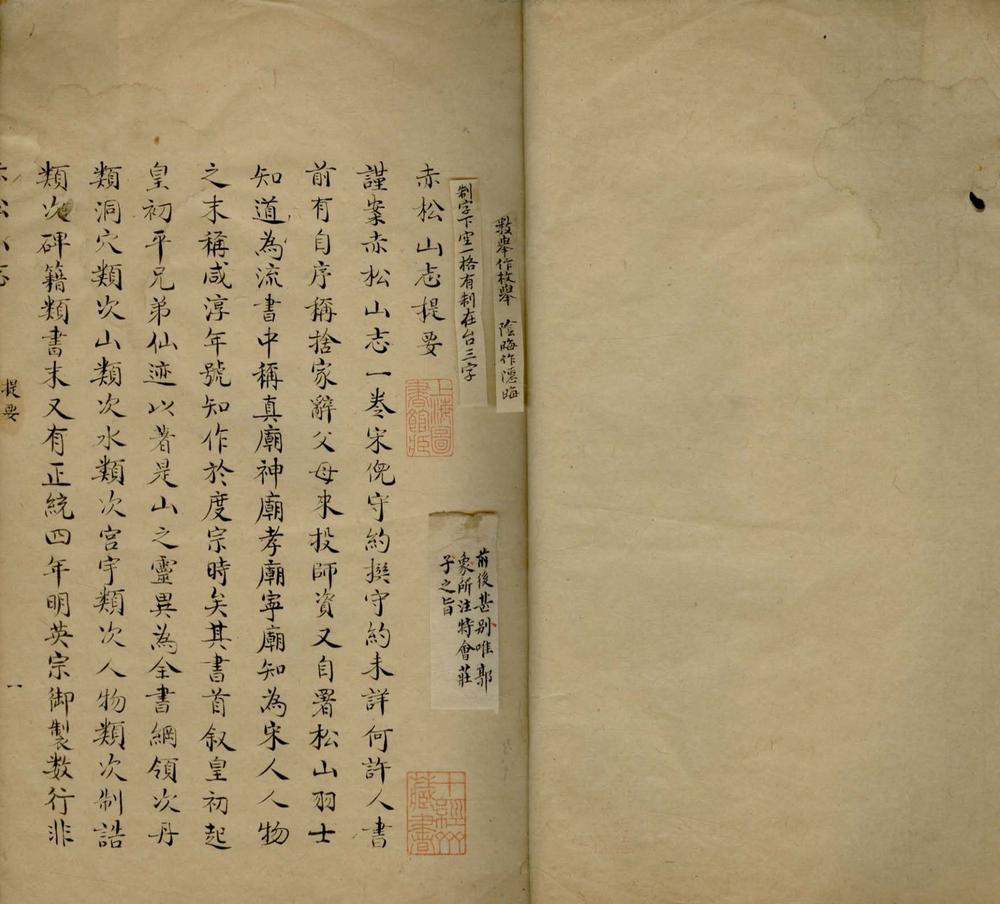 數舉作枚舉 陰晦作隱晦
制字下空一格有制在台三字
前後甚别唯郭
象所注特會莊
子之旨
赤松山志提要
上海圖
書館藏
藏書
謹案赤松山志一卷宋倪守約撰守約未詳何許人書
前有自序稱捨家辭父母来投師資又自署松山羽士
知道為流書中稱真廟神廟孝廟寧廟知為宋人人物
之末稱咸淳年號知作於度宗時矣其書首叙皇初起
皇初平兄弟仙迹以著是山之靈異為全書綱領次丹
類洞穴類次山類次水類次宫宇類次人物類次制誥
類次碑籍類書末又有正統四年明英宗御製数行非
赤松山志
提要
一